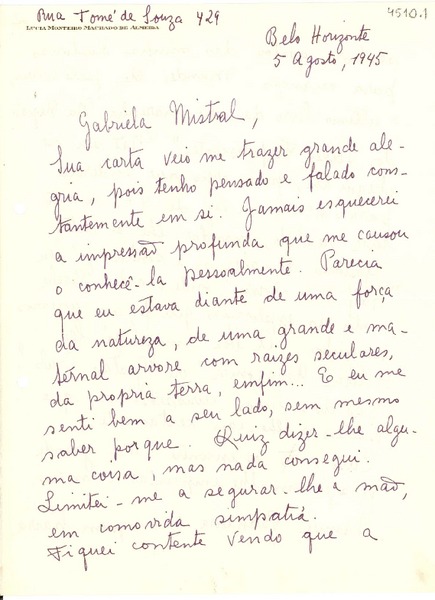 4510.1
Rua Tomé de Souza 429
LUCIA MONTEIRO MACHADO DE ALMEIDA
Belo Horizonte
5 Agosto, 1945
Gabriela Mistral,
Sua carta veio me trazer grande ale-
gria, pois tenho pensado e falado cons-
tantemente em si. Jamais esquecerei
a impressão profunda que me causou
o conhecê-la pessoalmente. Parecia
que eu estava diante de uma força
da natureza, de uma grande e ma-
ternal arvore com raizes seculares,
da propria terra, emfim... E eu me
senti bem a seu lado, sem mesmo
saber porque. Quiz dizer-lhe algu-
ma coisa, mas nada consegui.
Limitei-me a segurar-lhe a mão,
em comovida simpatia.
Fiquei contente vendo que a